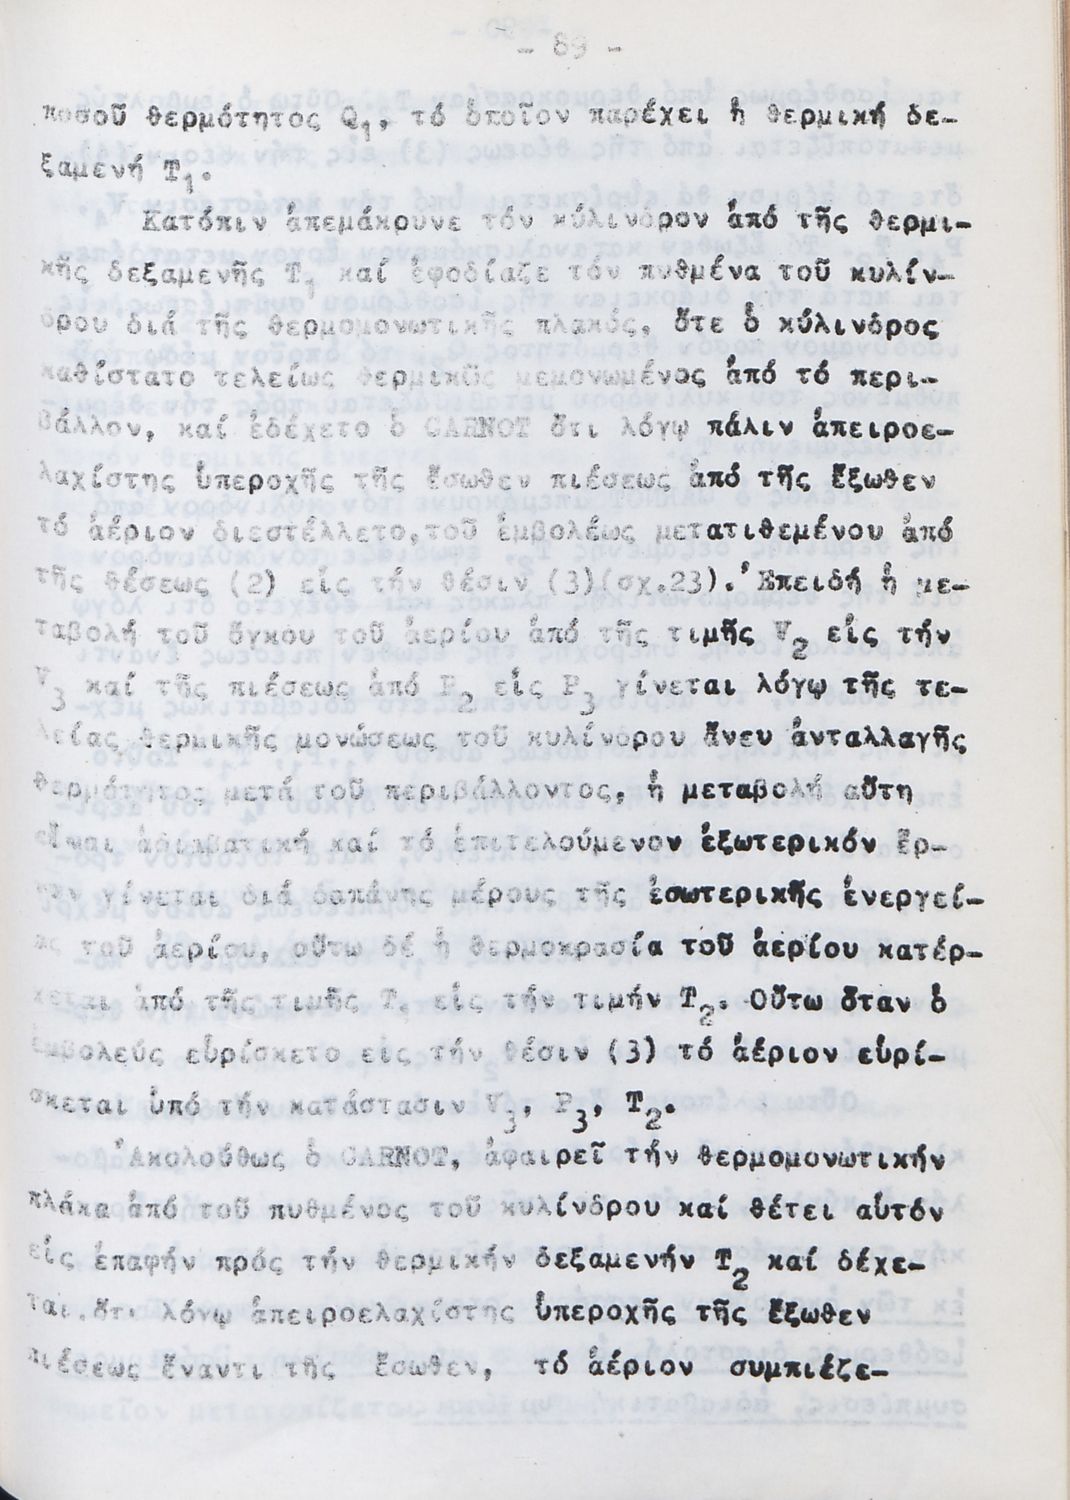 - 89 -
ποσοῦ θερμότητος Q₁, τό ὁποῖον παρέχει ἡ θερμική δε-
ξαμενή T₁.
Κατόπιν ἀπεμάκρυνε τόν κύλινδρον ἀπό τῆς θερμι-
κῆς δεξαμενῆς T₁ καί ἐφοδίαζε τόν πυθμένα τοῦ κυλίν-
δρου διά τῆς θερμομονωτικῆς πλακός, ὅτε ὁ κύλινδρος
καθίστατο τελείως θερμικῶς μεμονωμένος ἀπό τό περι-
βάλλον, καί ἐδέχετο ὁ CARNOT ὅτι λόγῳ πάλιν ἀπειροε-
λαχίστης ὑπεροχῆς τῆς ἔσωθεν πιέσεως ἀπό τῆς ἔξωθεν
τό ἀέριον διεστέλλετο, τοῦ ἐμβολέως μετατιθεμένου ἀπό
τῆς θέσεως (2) εἰς τήν θέσιν (3)(σχ.23). Ἐπειδή ἡ με-
ταβολή τοῦ ὄγκου τοῦ ἀερίου ἀπό τῆς τιμῆς V₂ εἰς τήν
V₃ καί τῆς πιέσεως ἀπό P₂ εἰς P₃ γίνεται λόγῳ τῆς τε-
λείας θερμικῆς μονώσεως τοῦ κυλίνδρου ἄνευ ἀνταλλαγῆς
θερμότητος μετά τοῦ περιβάλλοντος, ἡ μεταβολή αὕτη
εἶναι ἀδιαβατική καί τό ἐπιτελούμενον ἐξωτερικόν ἔρ-
γον γίνεται διά δαπάνης μέρους τῆς ἐσωτερικῆς ἐνεργεί-
ας τοῦ ἀερίου, οὕτω δέ ἡ θερμοκρασία τοῦ ἀερίου κατέρ-
χεται ἀπό τῆς τιμῆς T₁ εἰς τήν τιμήν T₂. Οὕτω ὅταν ὁ
ἐμβολεύς εὑρίσκετο εἰς τήν θέσιν (3) τό ἀέριον εὑρί-
σκεται ὑπό τήν κατάστασιν V₃, P₃, T₂.
Ἀκολούθως ὁ CARNOT, ἀφαιρεῖ τήν θερμομονωτικήν
πλάκα ἀπό τοῦ πυθμένος τοῦ κυλίνδρου καί θέτει αὐτόν
εἰς ἐπαφήν πρός τήν θερμικήν δεξαμενήν T₂ καί δέχε-
ται, ὅτι λόγῳ ἀπειροελαχίστης ὑπεροχῆς τῆς ἔξωθεν
πιέσεως ἔναντι τῆς ἔσωθεν, τό ἀέριον συμπιέζε-